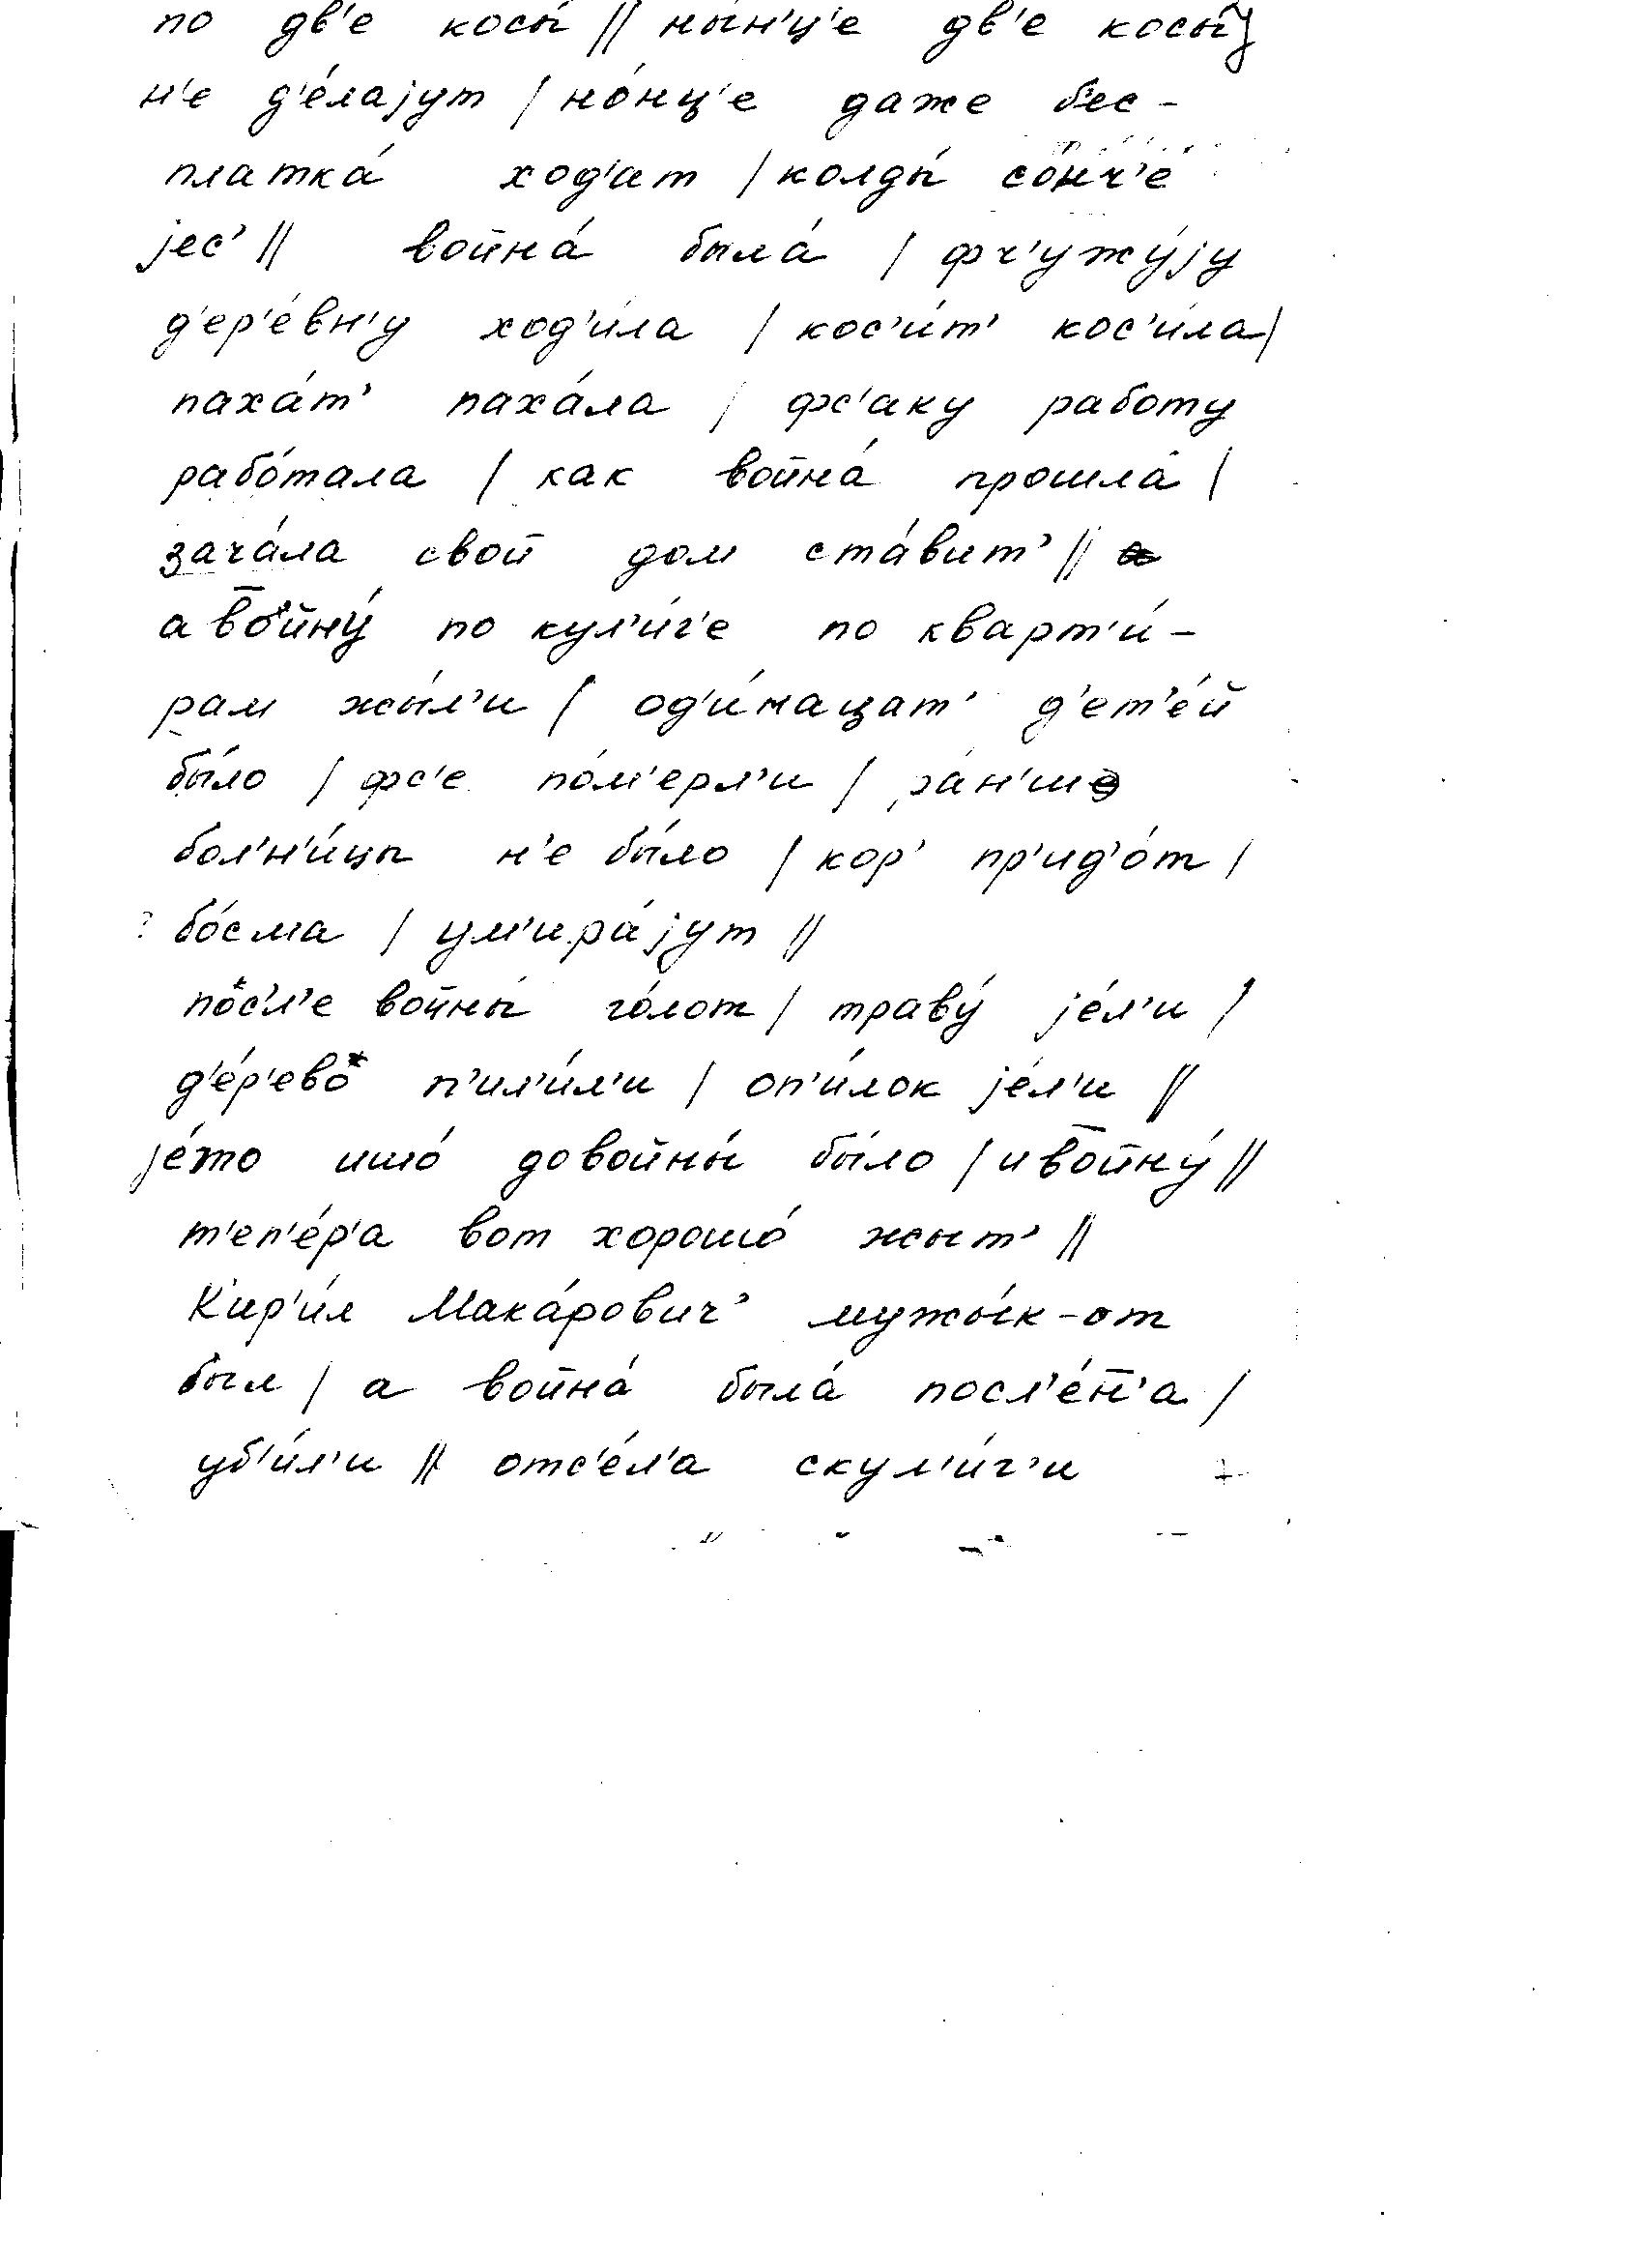 по дв'е косы́ // ны́н'ц'е дв'е косы́
н'е д'е́лаjут / но́нц'е даже б'ес-
платка́ ход'ат / колды́ со́нч'е
jес' // война́ была́ / фч'ужу́jу
д'ер'е́вн'у ход'и́ла / кос'и́т' кос'и́ла /
паха́т' паха́ла / фс'аку работу
рабо́тала / как война́ прошла́ /
зача́ла свой дом ста́вит' //
а во̄йну́ по кул'и́г'е по кварт'и́-
рам жы́л'и / од'и́нацат' д'ет'е́й
бы́ло / фс'е по́м'ерл'и / ра́н'ше
бол'н'и́цы н'е бы́ло / кор' пр'ид'о́т /
? бо́сма / ум'ира́jут //
по́с'л'е войны́ го́лот / траву́ jе́л'и /
д'е́р'ево п'ил'и́л'и / оп'и́лок jе́л'и //
jе́то ишо́ довойны́ бы́ло / иво̄йну́ //
т'еп'е́р'а вот хорошо́ жыт' //
К'ир'и́л Мака́рович' мужы́к-от
был / а война́ была́ посл'е́н̄'а /
уб'и́л'и // отс'е́л'а скул'и́г'и